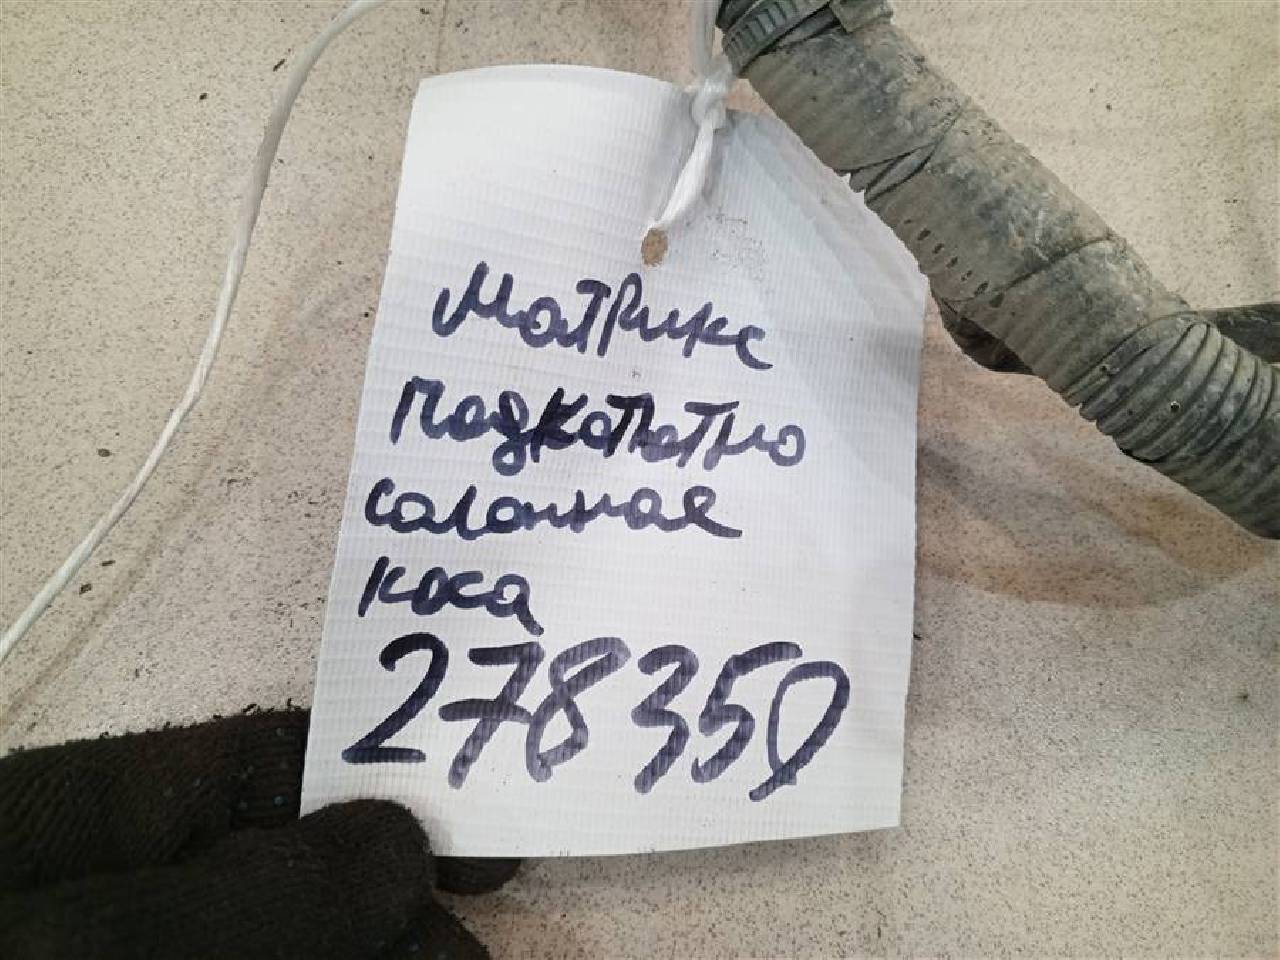 Матрикс
Подкапотно
салонная
коса
278350